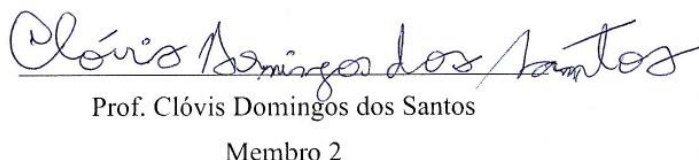 Clóvis Domingos dos Santos
Prof. Clóvis Domingos dos Santos
Membro 2